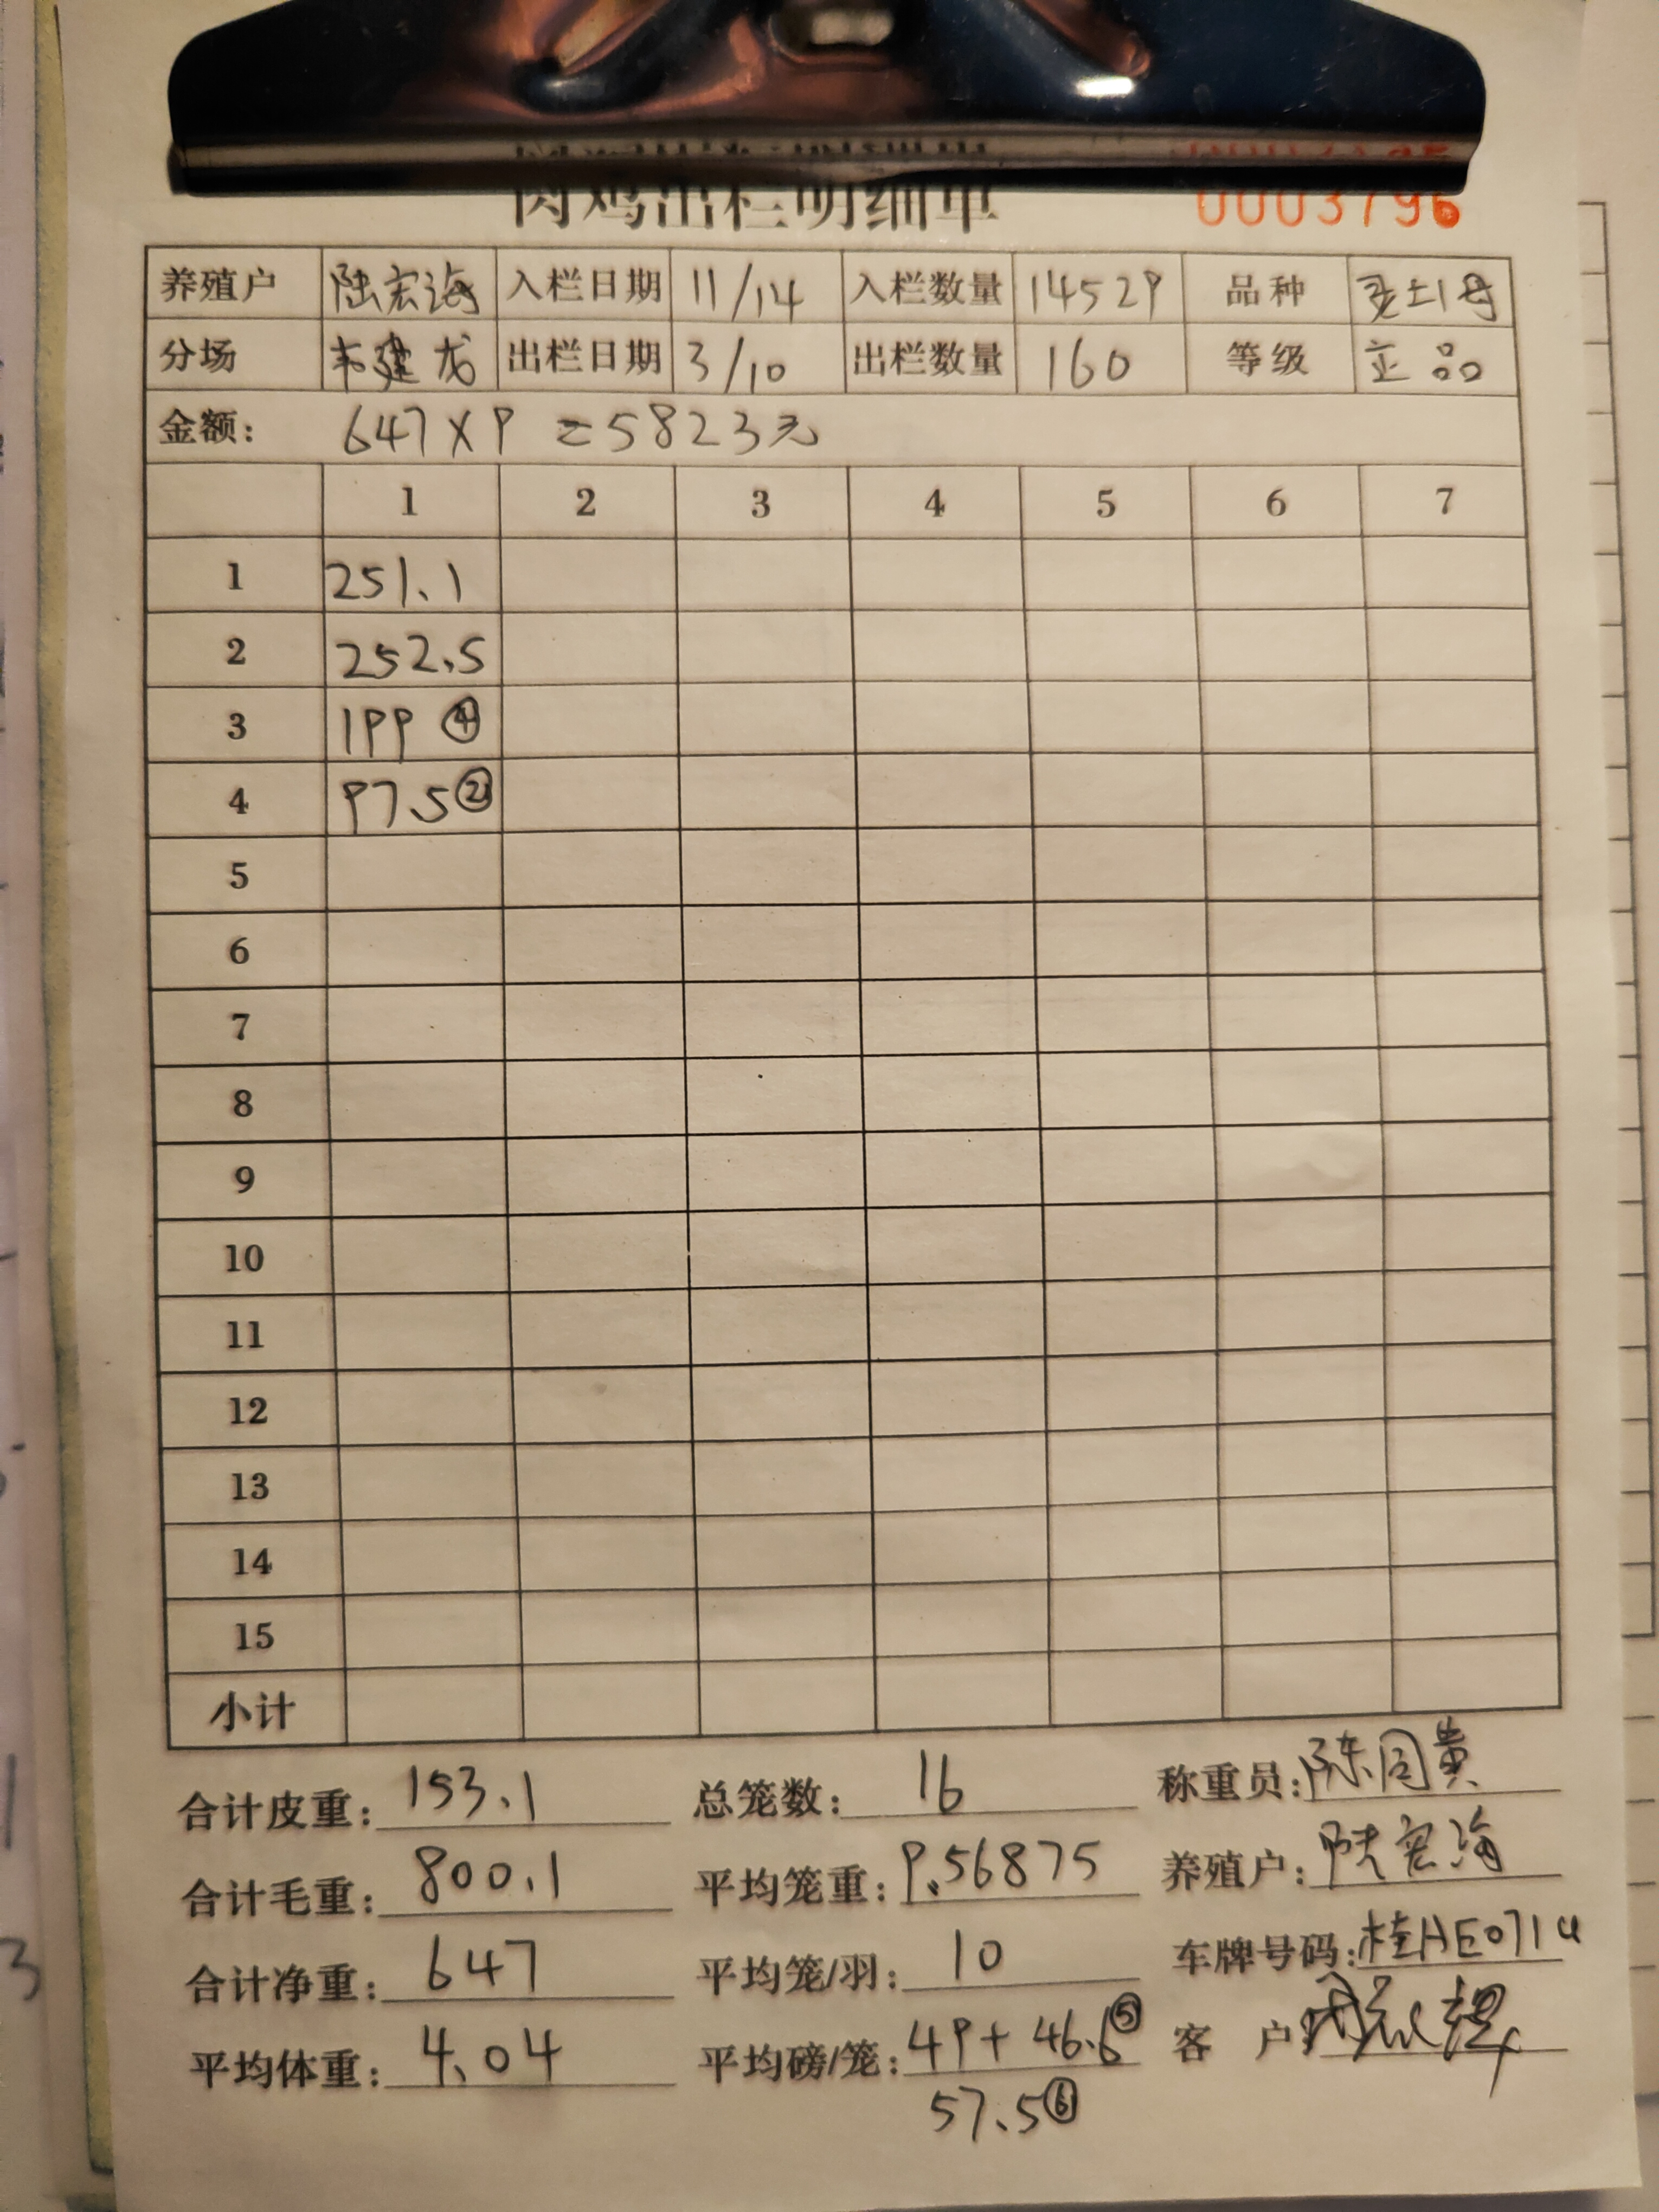 肉鸡出栏明细单 0003796
养殖户 陆宏海 入栏日期 11/14 入栏数量 14529 品种 土1号
分场 韦建龙 出栏日期 3/10 出栏数量 160 等级 正品
金额: 647×9=5823元
1 2 3 4 5 6 7
1 251.1
2 252.5
3 199 ④
4 97.5 ②
5
6
7
8
9
10
11
12
13
14
15
小计
合计皮重: 153.1 总笼数: 16 称重员: 陈同黄
合计毛重: 800.1 平均笼重: 9.56875 养殖户: 陆宏海
合计净重: 647 平均笼/羽: 10 车牌号码: 桂AE0714
平均体重: 4.04 平均磅/笼: 49+46.6⑤ 客 户
57.5⑥